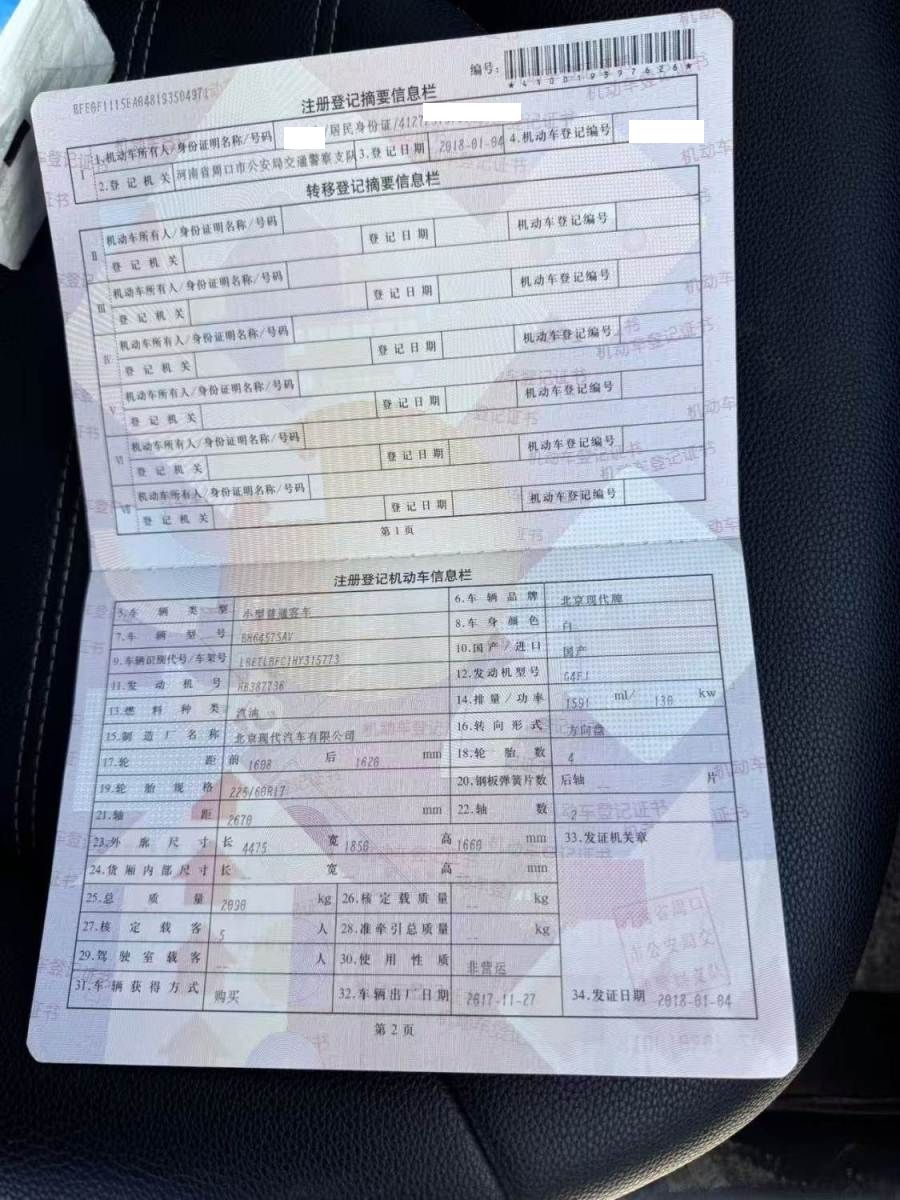 编号:
*410019397626*
BFE0F1115EA0481935D4971
注册登记摘要信息栏
I 1.机动车所有人/身份证明名称/号码 /居民身份证/
2.登记机关 河南省周口市公安局交通警察支队 3.登记日期 2018-01-04 4.机动车登记编号
转移登记摘要信息栏
II 机动车所有人/身份证明名称/号码
登记机关 登记日期 机动车登记编号
III 机动车所有人/身份证明名称/号码
登记机关 登记日期 机动车登记编号
IV 机动车所有人/身份证明名称/号码
登记机关 登记日期 机动车登记编号
V 机动车所有人/身份证明名称/号码
登记机关 登记日期 机动车登记编号
VI 机动车所有人/身份证明名称/号码
登记机关 登记日期 机动车登记编号
VII 机动车所有人/身份证明名称/号码
登记机关 登记日期 机动车登记编号
第1页
注册登记机动车信息栏
5.车辆类型 小型普通客车 6.车辆品牌 北京现代牌
7.车辆型号 BH6457SAV 8.车身颜色 白
9.车辆识别代号/车架号 LBETLBFC1HY315773 10.国产/进口 国产
11.发动机号 HB387736 12.发动机型号 G4FJ
13.燃料种类 汽油 14.排量/功率 1591 ml/ 130 kw
15.制造厂名称 北京现代汽车有限公司 16.转向形式 方向盘
17.轮距 前 1608 后 1620 mm 18.轮胎数 4
19.轮胎规格 225/60R17 20.钢板弹簧片数 后轴 片
21.轴距 2670 mm 22.轴数 2
23.外廓尺寸 长 4475 宽 1850 高 1660 mm 33.发证机关章
24.货厢内部尺寸 长 宽 高 mm
25.总质量 2090 kg 26.核定载质量 -- kg
27.核定载客 5 人 28.准牵引总质量 -- kg
29.驾驶室载客 -- 人 30.使用性质 非营运
31.车辆获得方式 购买 32.车辆出厂日期 2017-11-27 34.发证日期 2018-01-04
第2页